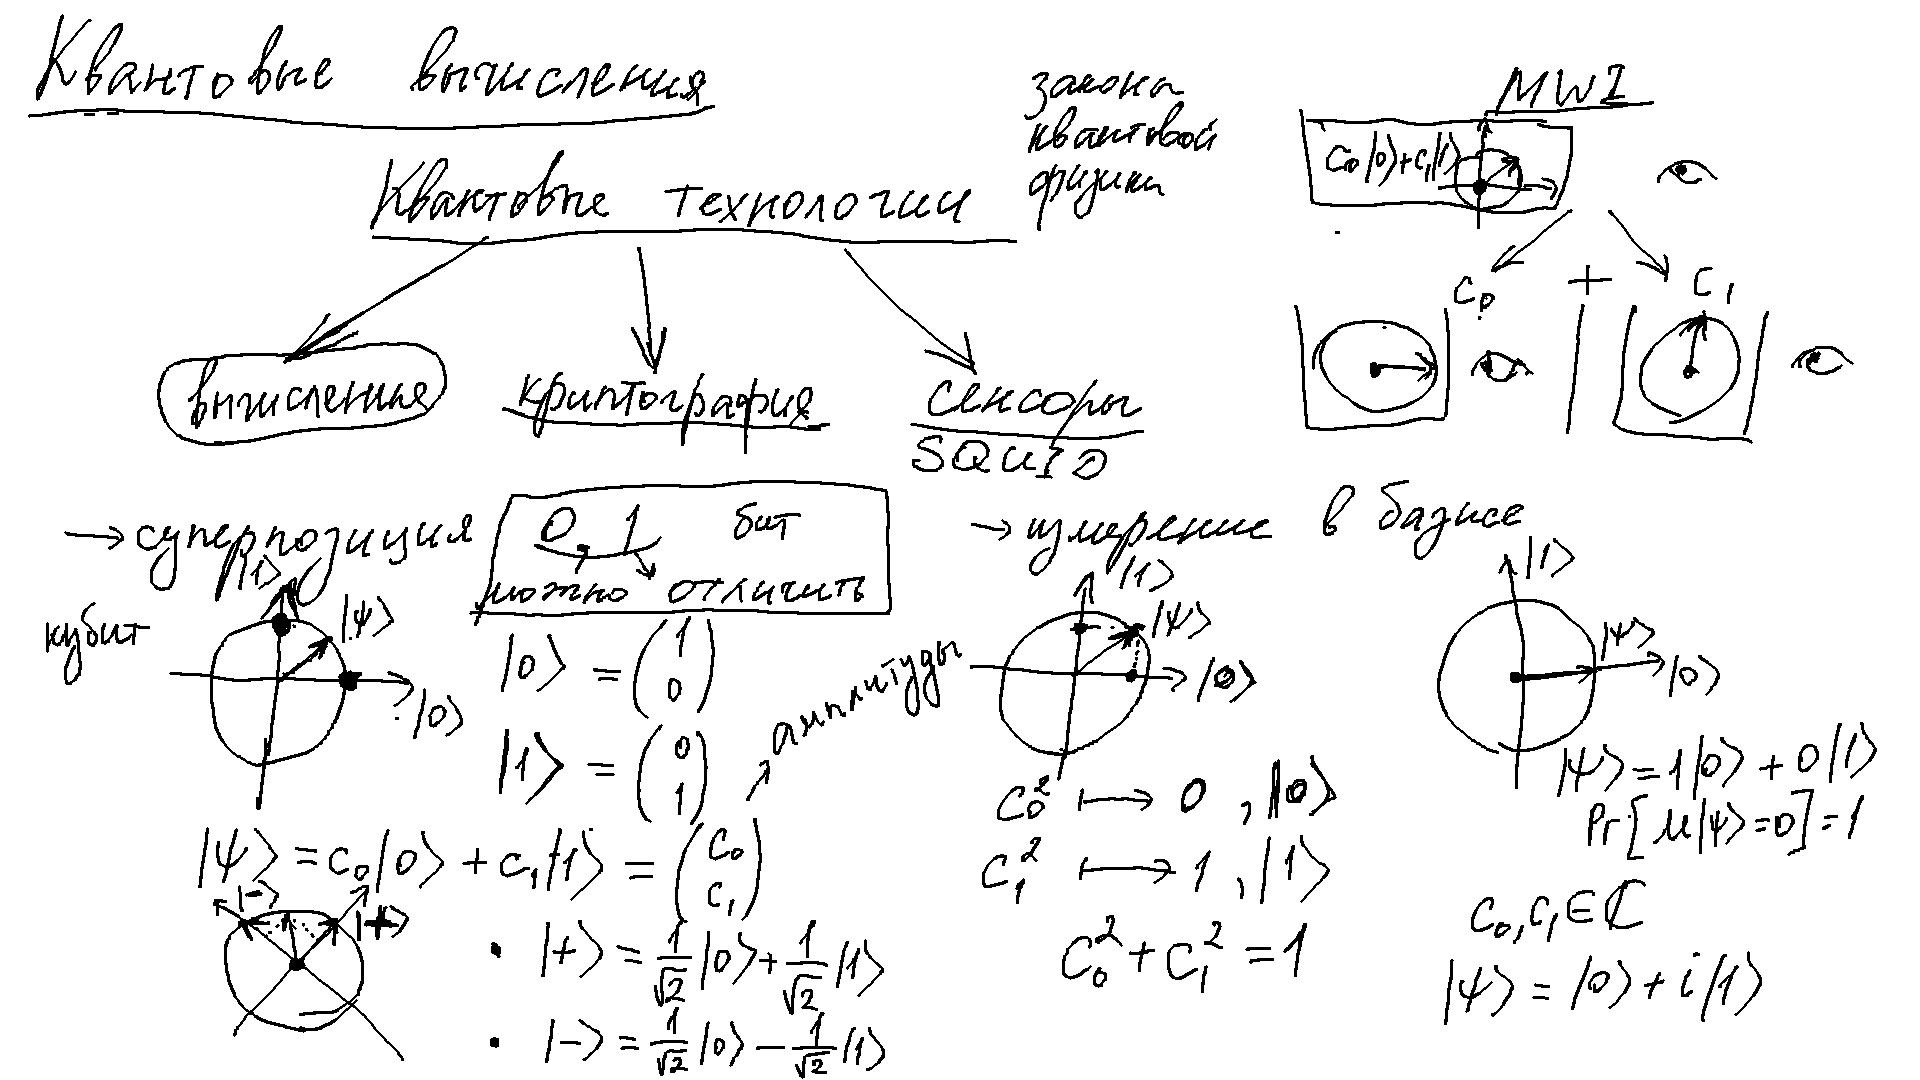 Квантовые вычисления
Квантовые технологии
законы
квантовой
физики
вычисления
криптография
сенсоры
SQUID
MWI
c₀|0⟩+c₁|1⟩
c₀ + c₁
→ суперпозиция
кубит
|1⟩
|ψ⟩
|0⟩
0, 1 бит
можно отличить
|0⟩ = (1 0)
|1⟩ = (0 1)
амплитуды
|ψ⟩ = c₀|0⟩ + c₁|1⟩ = (c₀ c₁)
|−⟩
|+⟩
• |+⟩ = 1/√2 |0⟩ + 1/√2 |1⟩
• |−⟩ = 1/√2 |0⟩ − 1/√2 |1⟩
→ измерение в базисе
|1⟩
|ψ⟩
|0⟩
c₀² ↦ 0 , |0⟩
c₁² ↦ 1 , |1⟩
c₀² + c₁² = 1
|1⟩
|ψ⟩
|0⟩
|ψ⟩ = 1|0⟩ + 0|1⟩
Pr[M|ψ⟩=0]=1
c₀, c₁ ∈ ℂ
|ψ⟩ = |0⟩ + i|1⟩